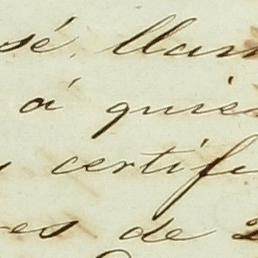 sé. llam
á quien
certifi
res de 2